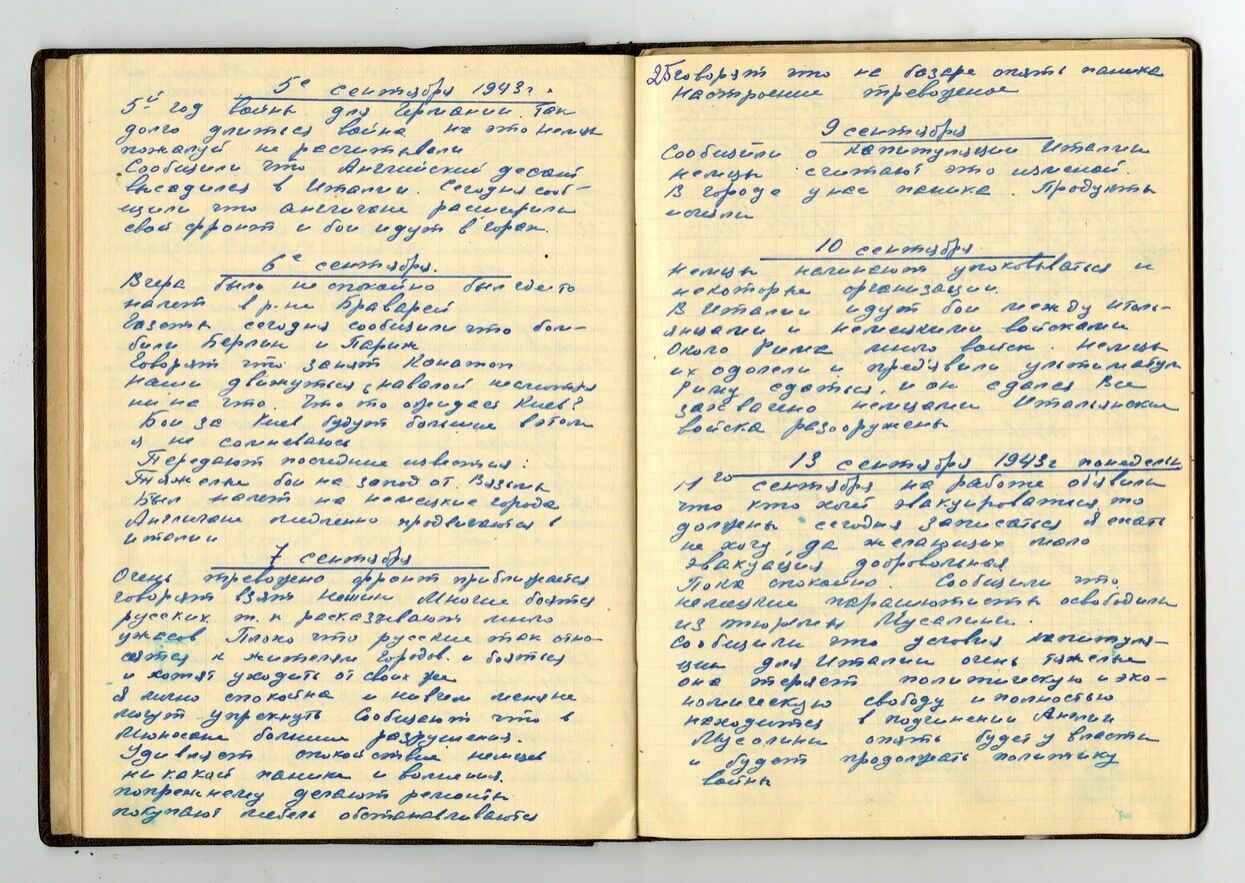 5е сентября 1943г.
5й год войны для Германии. Так
долго длиться война на это немцы
пожалуй не расчитывали
Сообщили что Английский десант
высадился в Италии. Сегодня сооб-
щили что англичане расширили
свой фронт и бои идут в горах.
6е сентября.
Вчера было не спокойно был где то
налет в р-не Браварей
Газеты сегодня сообщили что бом-
били Берлин и Париж
Говорят что занят Конотоп
наши движуться навалой несмотря
ни на что. Что то ожидает Киев?
Бои за Киев будут большие в этом
я не сомневаюсь
Передают последние известия:
Тяжелые бои на запод от Вязьмы
Был налет на немецкие города
Англичане медленно продвигаются в
италии
7 сентября
Очень тревожно фронт приближается
говорят взят Нежин Многие боятся
русских т. к расказывают много
ужасов Плохо что русские так отно-
сятся к жителям городов. и бояться
и хотят уходить от своих же
Я лично спокойна и ни в чем меня не
могут упрекнуть Сообщают что в
Мюнхене большие разрушения.
Удивляет спокойствие немцев
никакой паники и волнения.
попрежнему делают ремонты
покупают мебель обстанавливаются
25
говорят что на базаре опять паника
настроение тревожное
9 сентября
Сообщили о капитуляции Италии
немцы считают это изменой.
В городе у нас паника. Продукты
исчезли
10 сентября.
Немцы начинают упаковываться и
некоторые организации.
В Италии идут бои между италь-
янцами и немецкими войсками
Около Рима много войск. Немцы
их одолели и предявили ультиматум
Риму сдаться, и он сдался Все
захвачено немцами Итальянские
войска разоружены
13 сентября 1943г понедельн
11го сентября на работе обявили
что кто хочет эвакуироваться то
должны сегодня записаться Я ехать
не хочу, да желающих мало
Эвакуация добровольная
Пока спокойно. Сообщили что
немецкие парашютисты освободили
из тюрьмы Мусалини.
Сообщили что условия капитуля-
ции для Италии очень тяжелые
она теряет политическую и эко-
номическую свободу и полностью
находится в подчинении Англии
Мусолини опять будет у власти
и будет продолжать политику
войны